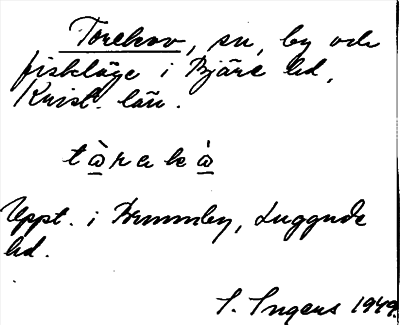 Torekov, sn, by och
fiskläge i Bjäre hd,
Krist. län.
tὼrekώ
Uppt. i Brunnby, Luggude
hd.
S. Ingers 1949.